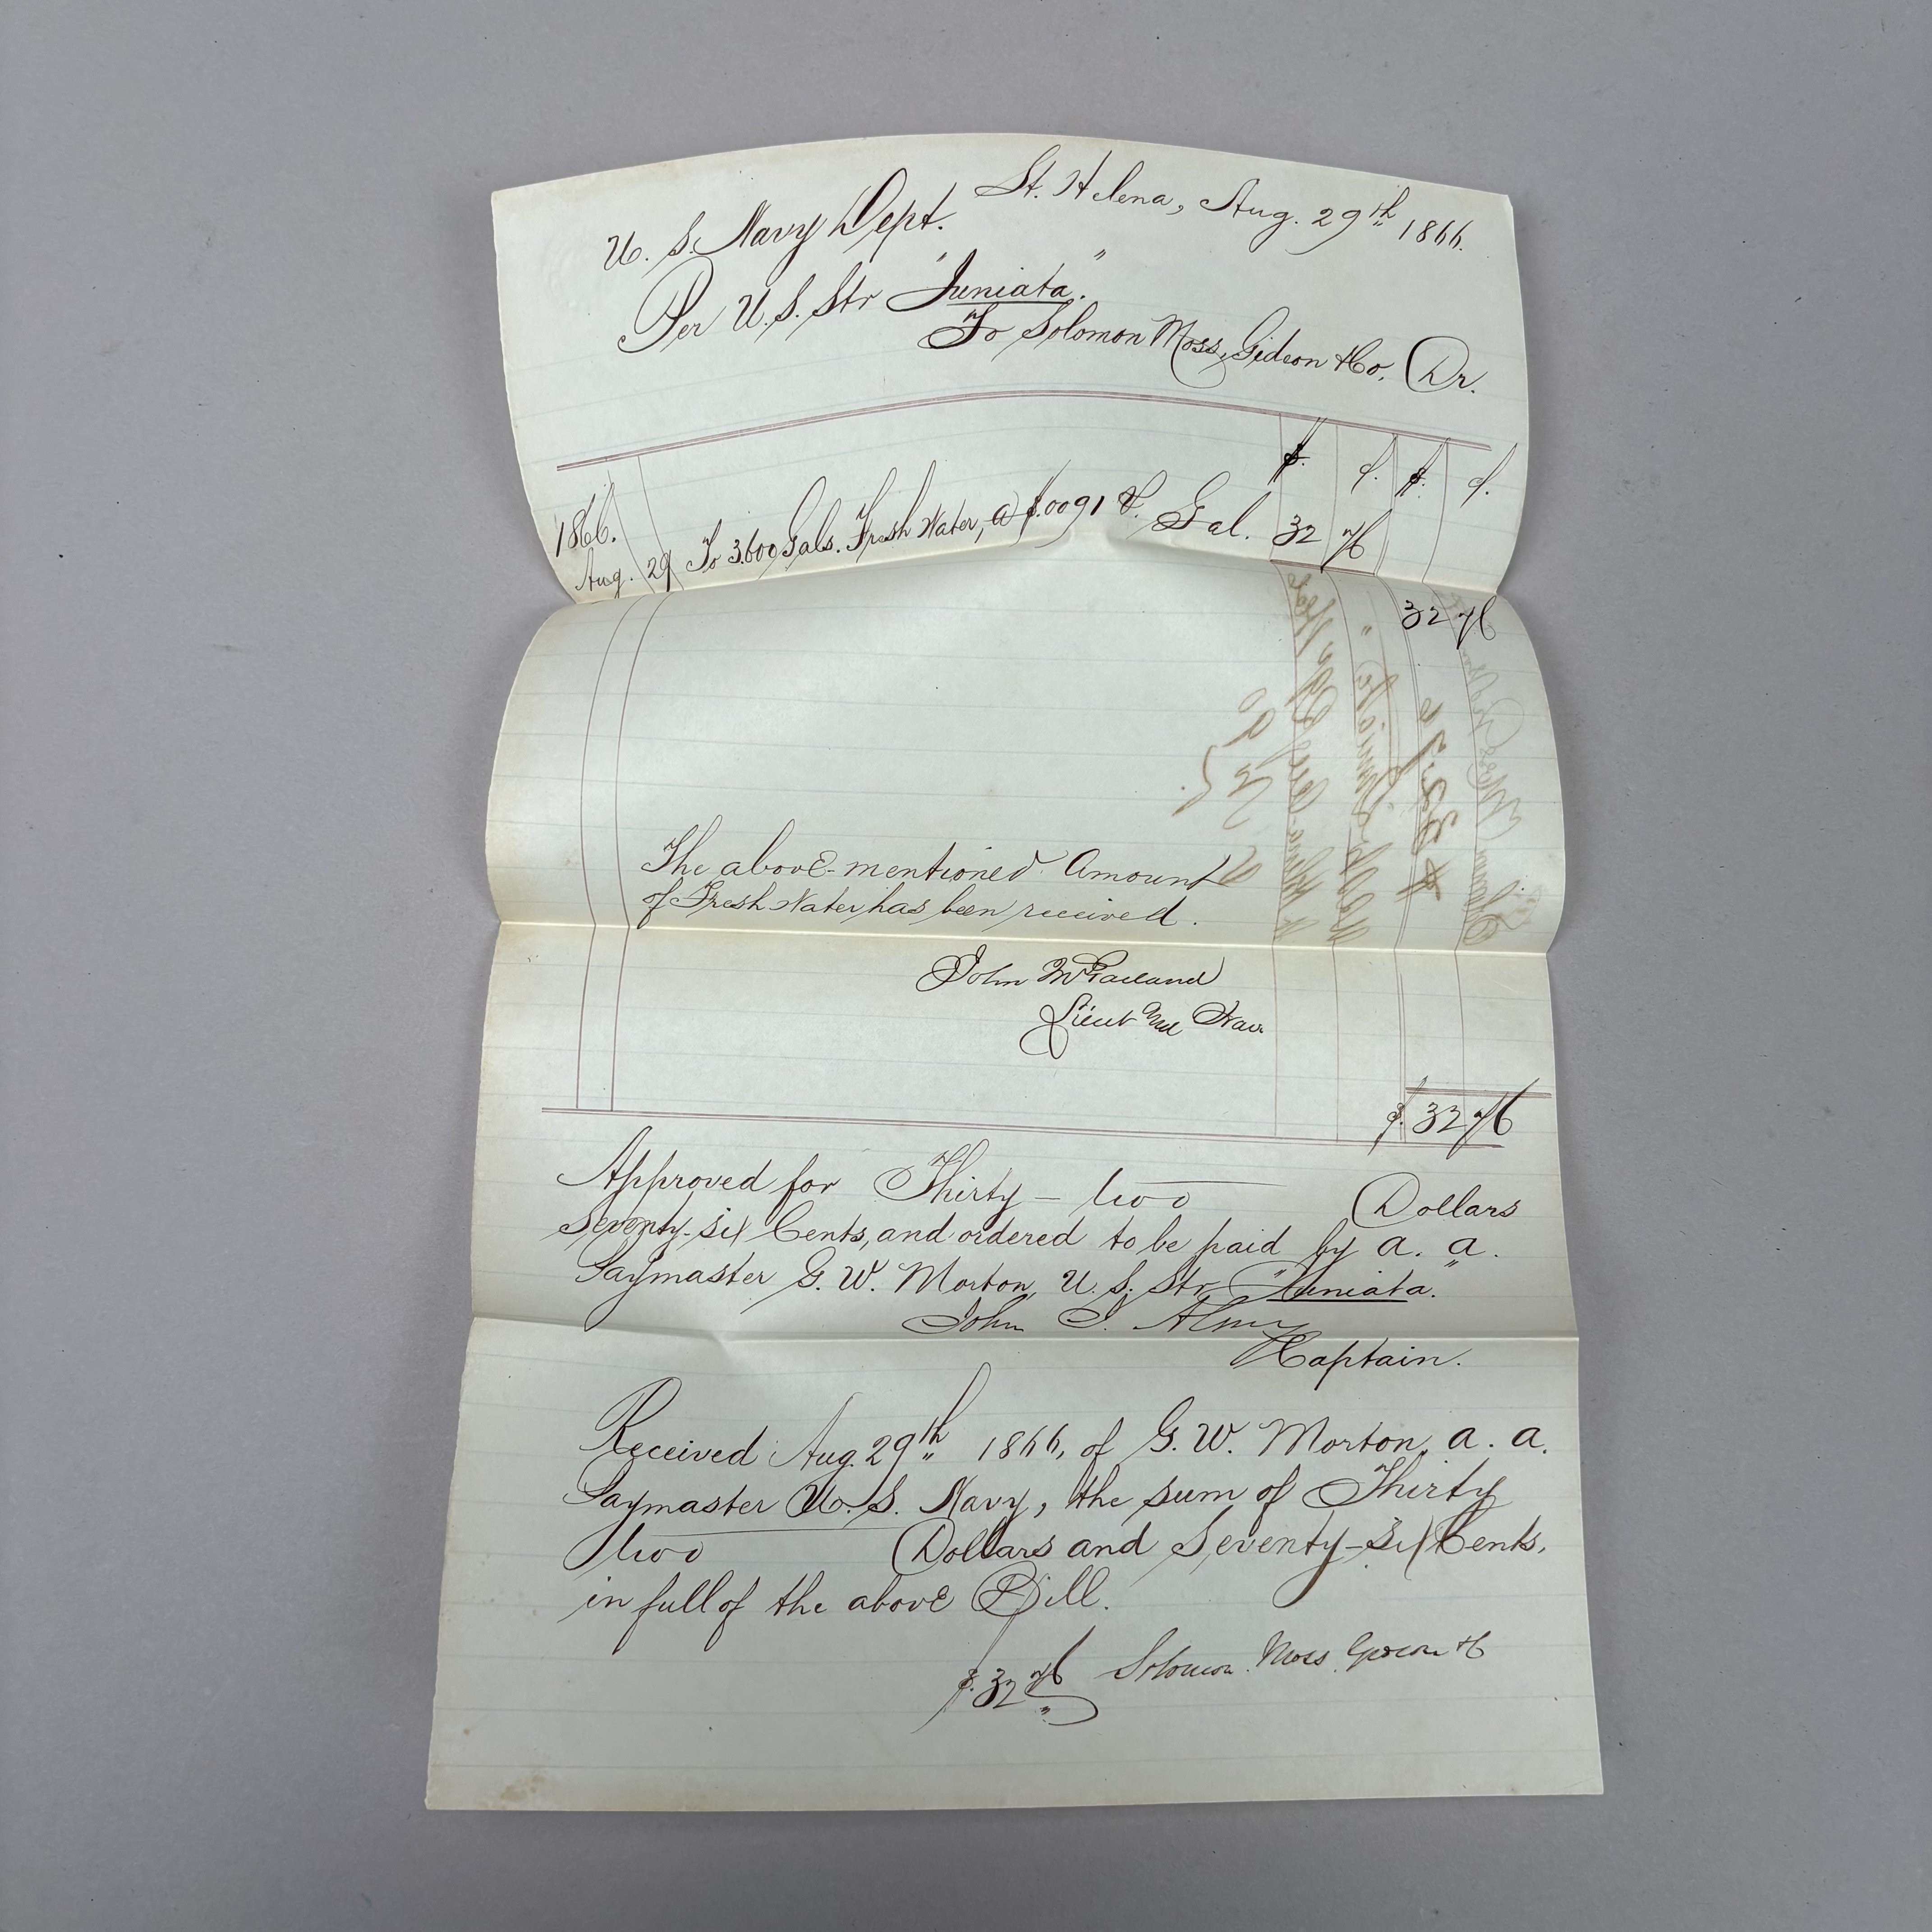 St. Helena, Aug. 29th 1866.
U. S. Navy Dept.
Per U. S. Str "Juniata."
To Solomon Moss, Gideon & Co. Dr.
$. c. $. c.
1866.
Aug. 29 To 3.600 Gals. Fresh Water, a $.0091 P. Gal. 32 76
32 76
The above-mentioned Amount
of Fresh Water has been received.
John McFarland
Lieut
$. 32 76
Approved for Thirty-two Dollars
Seventy-six Cents, and ordered to be paid by a. a.
Paymaster G. W. Morton, U. S. Str "Juniata."
John J. Almy
Captain.
Received Aug. 29th 1866, of G. W. Morton, a. a.
Paymaster U. S. Navy, the sum of Thirty
two Dollars and Seventy-six Cents,
in full of the above Bill.
$. 32 76 Solomon Moss Gideon & Co